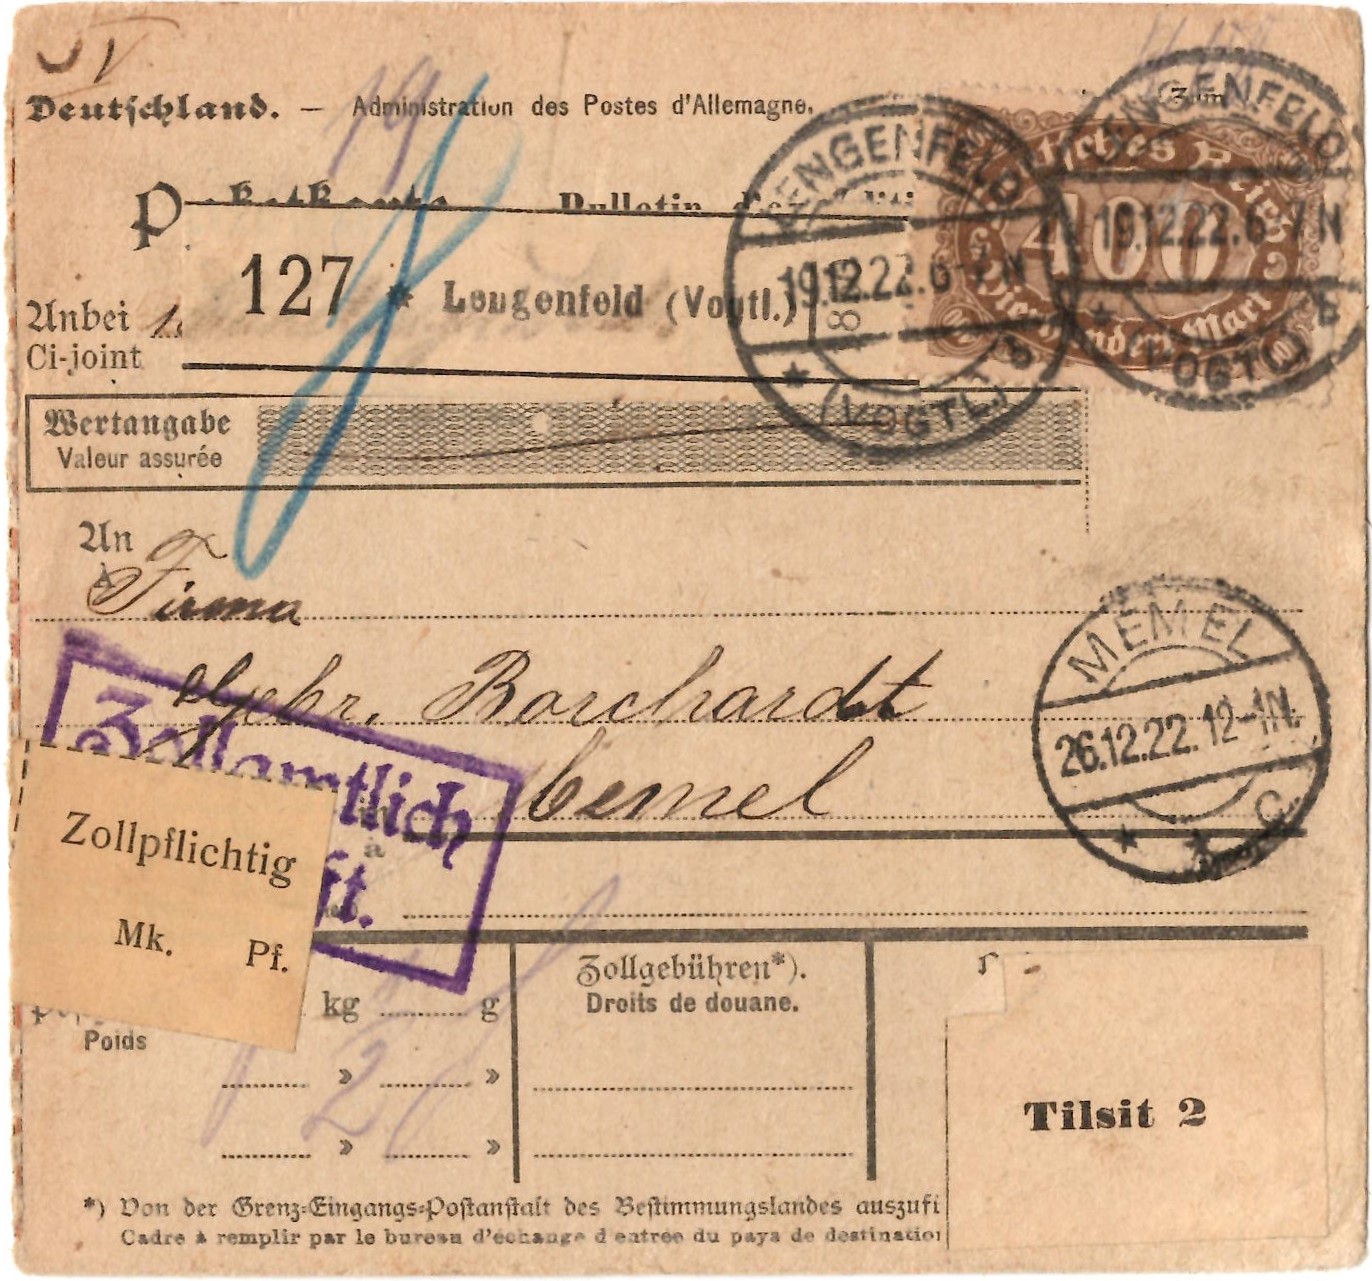 Deutschland. — Administration des Postes d'Allemagne.
127 * Lengenfeld (Vogtl.)
Anbei
Ci-joint
Deutsches Reich
400
Vierhundert Mark
LENGENFELD
19.12.22.6-7N
* (VOGTL.) B
LENGENFELD
19.12.22.6-7N
* (VOGTL.) B
Wertangabe
Valeur assurée
An
Firma
Gebr. Borchardt
Memel
MEMEL
26.12.22.12-1N.
* * C.
Zollamtlich
Zollpflichtig
Mk. Pf.
kg g
Poids
» »
» »
Zollgebühren*).
Droits de douane.
Tilsit 2
*) Von der Grenz-Eingangs-Postanstalt des Bestimmungslandes auszufü
Cadre à remplir par le bureau d'échange d'entrée du pays de destination